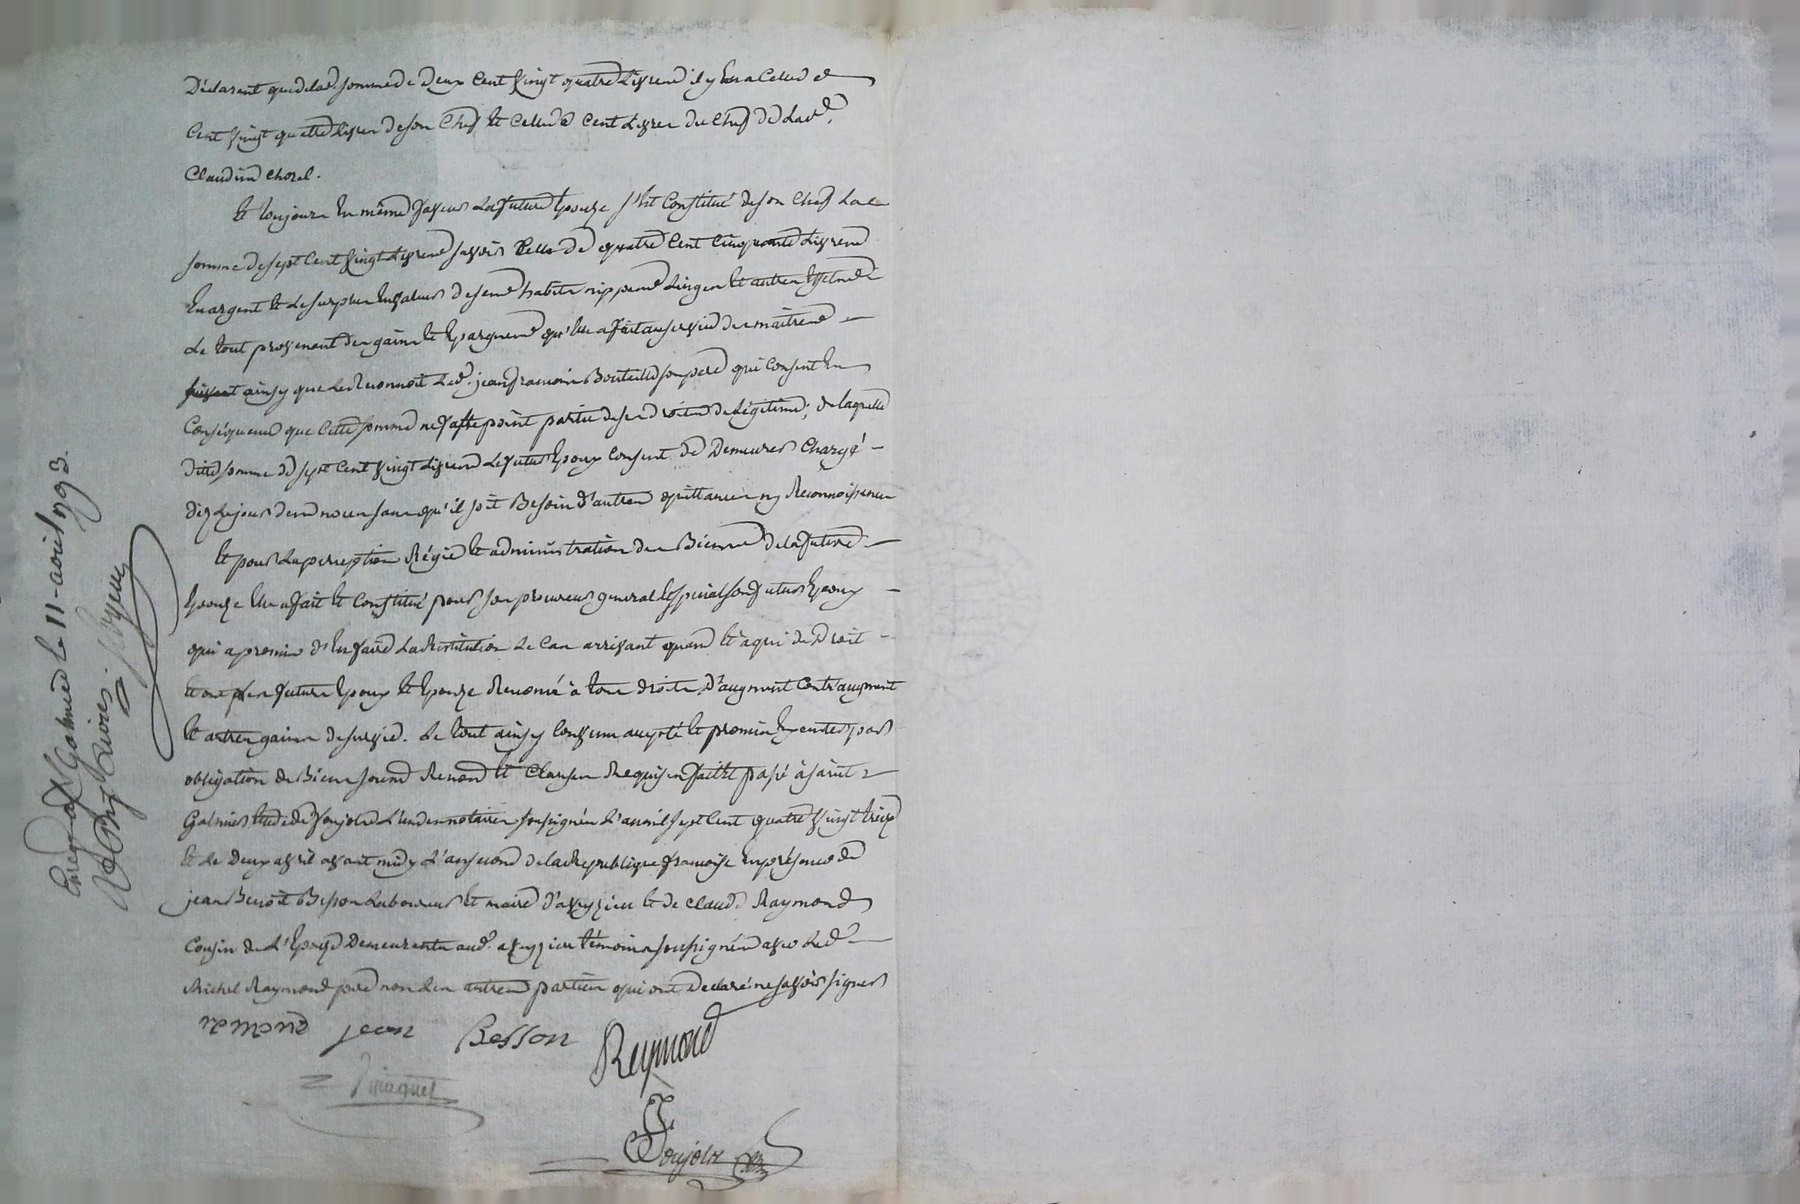 Déclarant que de lad. somme de deux cent vingt quatre livres il y en a celle de
cent vingt quatre livres de son chef et celle de cent livres du chef de lad.
Claudine Chorel.
Et toujours en même faveur la future épouze s'est constitué de son chef la
somme de sept cent vingt livres savoir celle de quatre cent cinquante livres
en argent et le surplus en valeur de ses habits nippes linges et autres effets
le tout provenant des gains et épargnes qu'elle a fait au service des maitres
ainsy que le reconnoit led. jean françois Bouteille son père qui consent en
conséquence que cette somme ne fasse point partie de ses droits de légitime; de laquelle
ditte somme de sept cent vingt livres le futur époux consent de demeurer chargé
dez le jour des noces sans qu'il soit besoin d'autres quittances ny reconnoissances
Et pour la perception régie et administration des biens de la future
épouze elle a fait et constitué pour son procureur général et spécial son futur époux
qui a promis d'en faire la restitution le cas arrivant quand et à qui de droit
et ont les futurs époux et épouze renoncé à tous droits d'augment contr'augment
et autres gains de survie. Le tout ainsy convenu accepté et promis exécuter par
obligation de biens soumis renoncé et clauses requises fait et passé à saint
Galmier étude de Poujols l'un des notaires soussignés l'an mil sept cent quatre vingt treize
et le deux avril avant midy l'an second de la république françoise en présence de
jean Benoit Besson laboureur et maire d'aveyzieu et de claude Raymond
cousin de l'épouze demeurants aud. aveyzieu témoins soussignés avec led.
Michel Raymond père non les autres parties qui ont déclaré ne savoir signer
remond jean Besson Reymond
Poujols
Enreg. à St Galmier le 11 avril 1793.